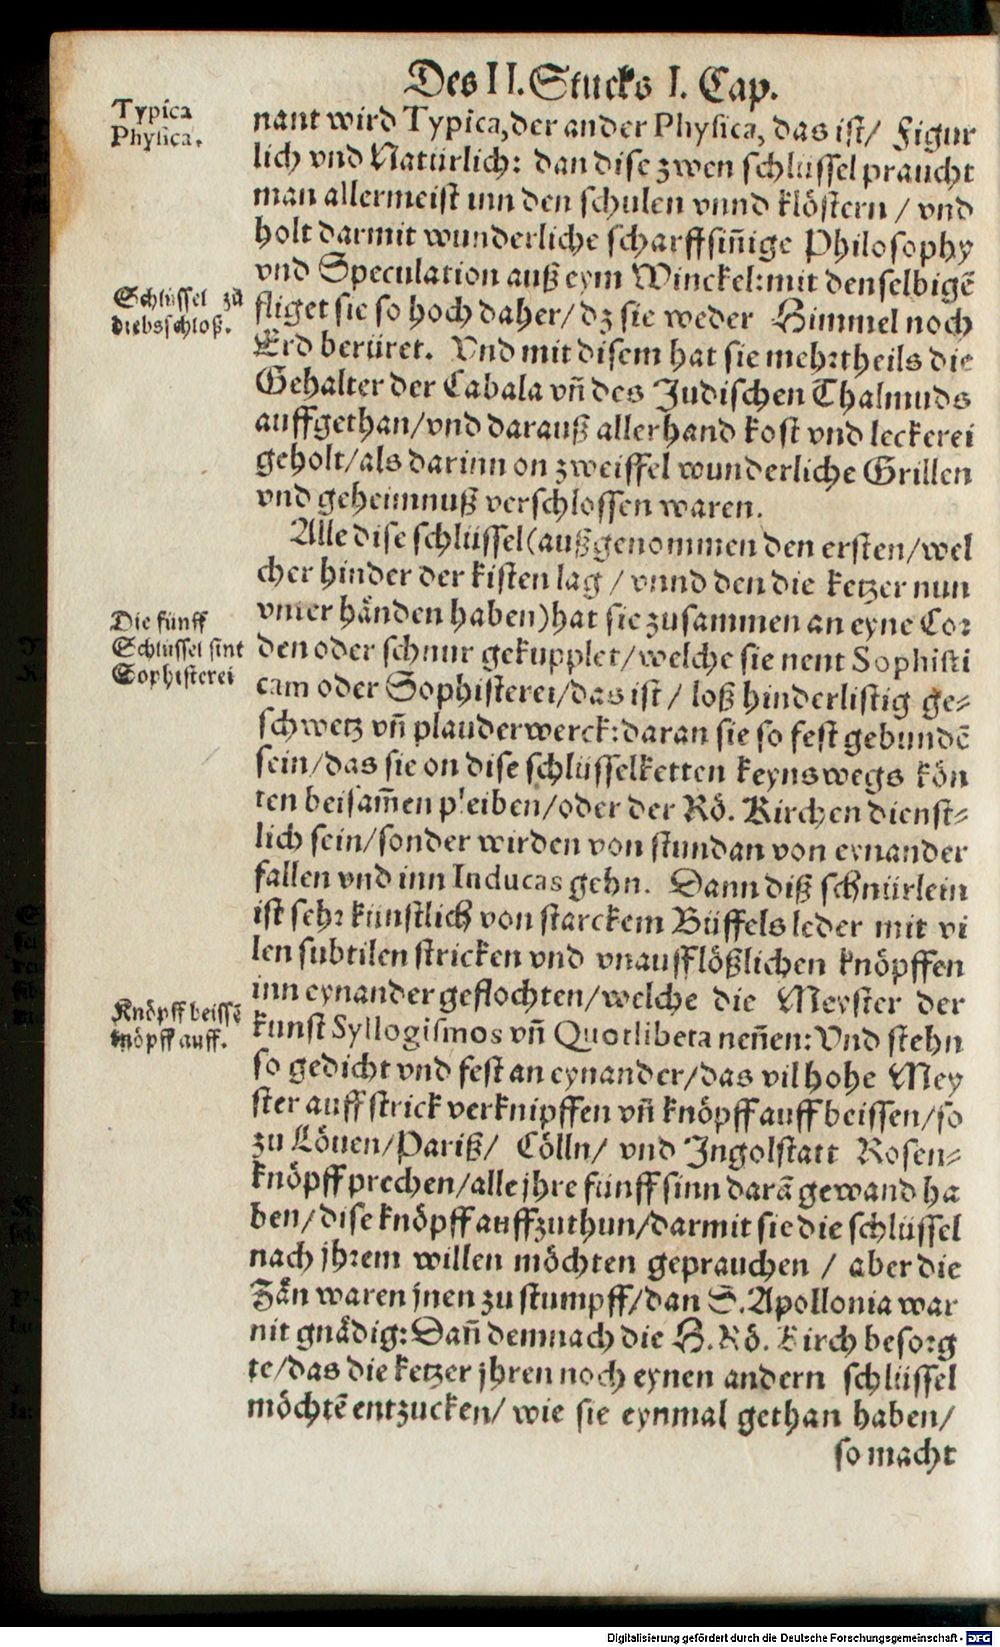 Des II. Stucks I. Cap.
Typica
Physica.
nant wird Typica, der ander Physica, das ist/ Figur
lich vnd Natürlich: dan dise zwen schlüssel praucht
man allermeist inn den schulen vnnd klöstern / vnd
holt darmit wunderliche scharffsiñige Philosophy
vnd Speculation auß eym Winckel: mit denselbigẽ
Schlüssel zů
diebsschloß.
fliget sie so hoch daher/ dz sie weder Himmel noch
Erd berüret. Vnd mit disem hat sie mehrtheils die
Gehalter der Cabala vñ des Judischen Thalmuds
auffgethan/ vnd darauß allerhand kost vnd leckerei
geholt/ als darinn on zweiffel wunderliche Grillen
vnd geheimnuß verschlossen waren.
Alle dise schlüssel (außgenommen den ersten/ wel
cher hinder der kisten lag / vnnd den die ketzer nun
Die fünff
Schlüssel sint
Sophisterei
vnter händen haben) hat sie zusammen an eyne Cor
den oder schnur gekupplet/ welche sie nent Sophisti
cam oder Sophisterei/ das ist / loß hinderlistig ge-
schwetz vñ plauderwerck: daran sie so fest gebundẽ
sein/ das sie on dise schlüsselketten keyns wegs kön
ten beisam̃en pleiben/ oder der Rö. Kirchen dienst-
lich sein/ sonder wirden von stund an von eynander
fallen vnd inn Inducas gehn. Dann diß schnürlein
ist sehr künstlich von starckem Büffels leder mit vi
len subtilen stricken vnd vnaufflößlichen knöpffen
inn eynander geflochten/ welche die Meyster der
Knöpff beissẽ
knöpff auff.
kunst Syllogismos vñ Quotlibeta neñen: Vnd stehn
so gedicht vnd fest an eynander/ das vil hohe Mey
ster auff strick verknipffen vñ knöpff auff beissen/ so
zu Löuen/ Pariß/ Cölln/ vnd Ingolstatt Rosen-
knöpff prechen/ alle jhre fünff sinn darã gewand ha
ben/ dise knöpff auffzuthun/ darmit sie die schlüssel
nach jhrem willen möchten geprauchen / aber die
Zän waren jnen zu stumpff/ dan S. Apollonia war
nit gnädig: Dañ demnach die H. Rö. Kirch besorg
te/ das die ketzer jhren noch eynen andern schlüssel
möchtẽ entzucken/ wie sie eynmal gethan haben/
so macht
Digitalisierung gefördert durch die Deutsche Forschungsgemeinschaft - DFG